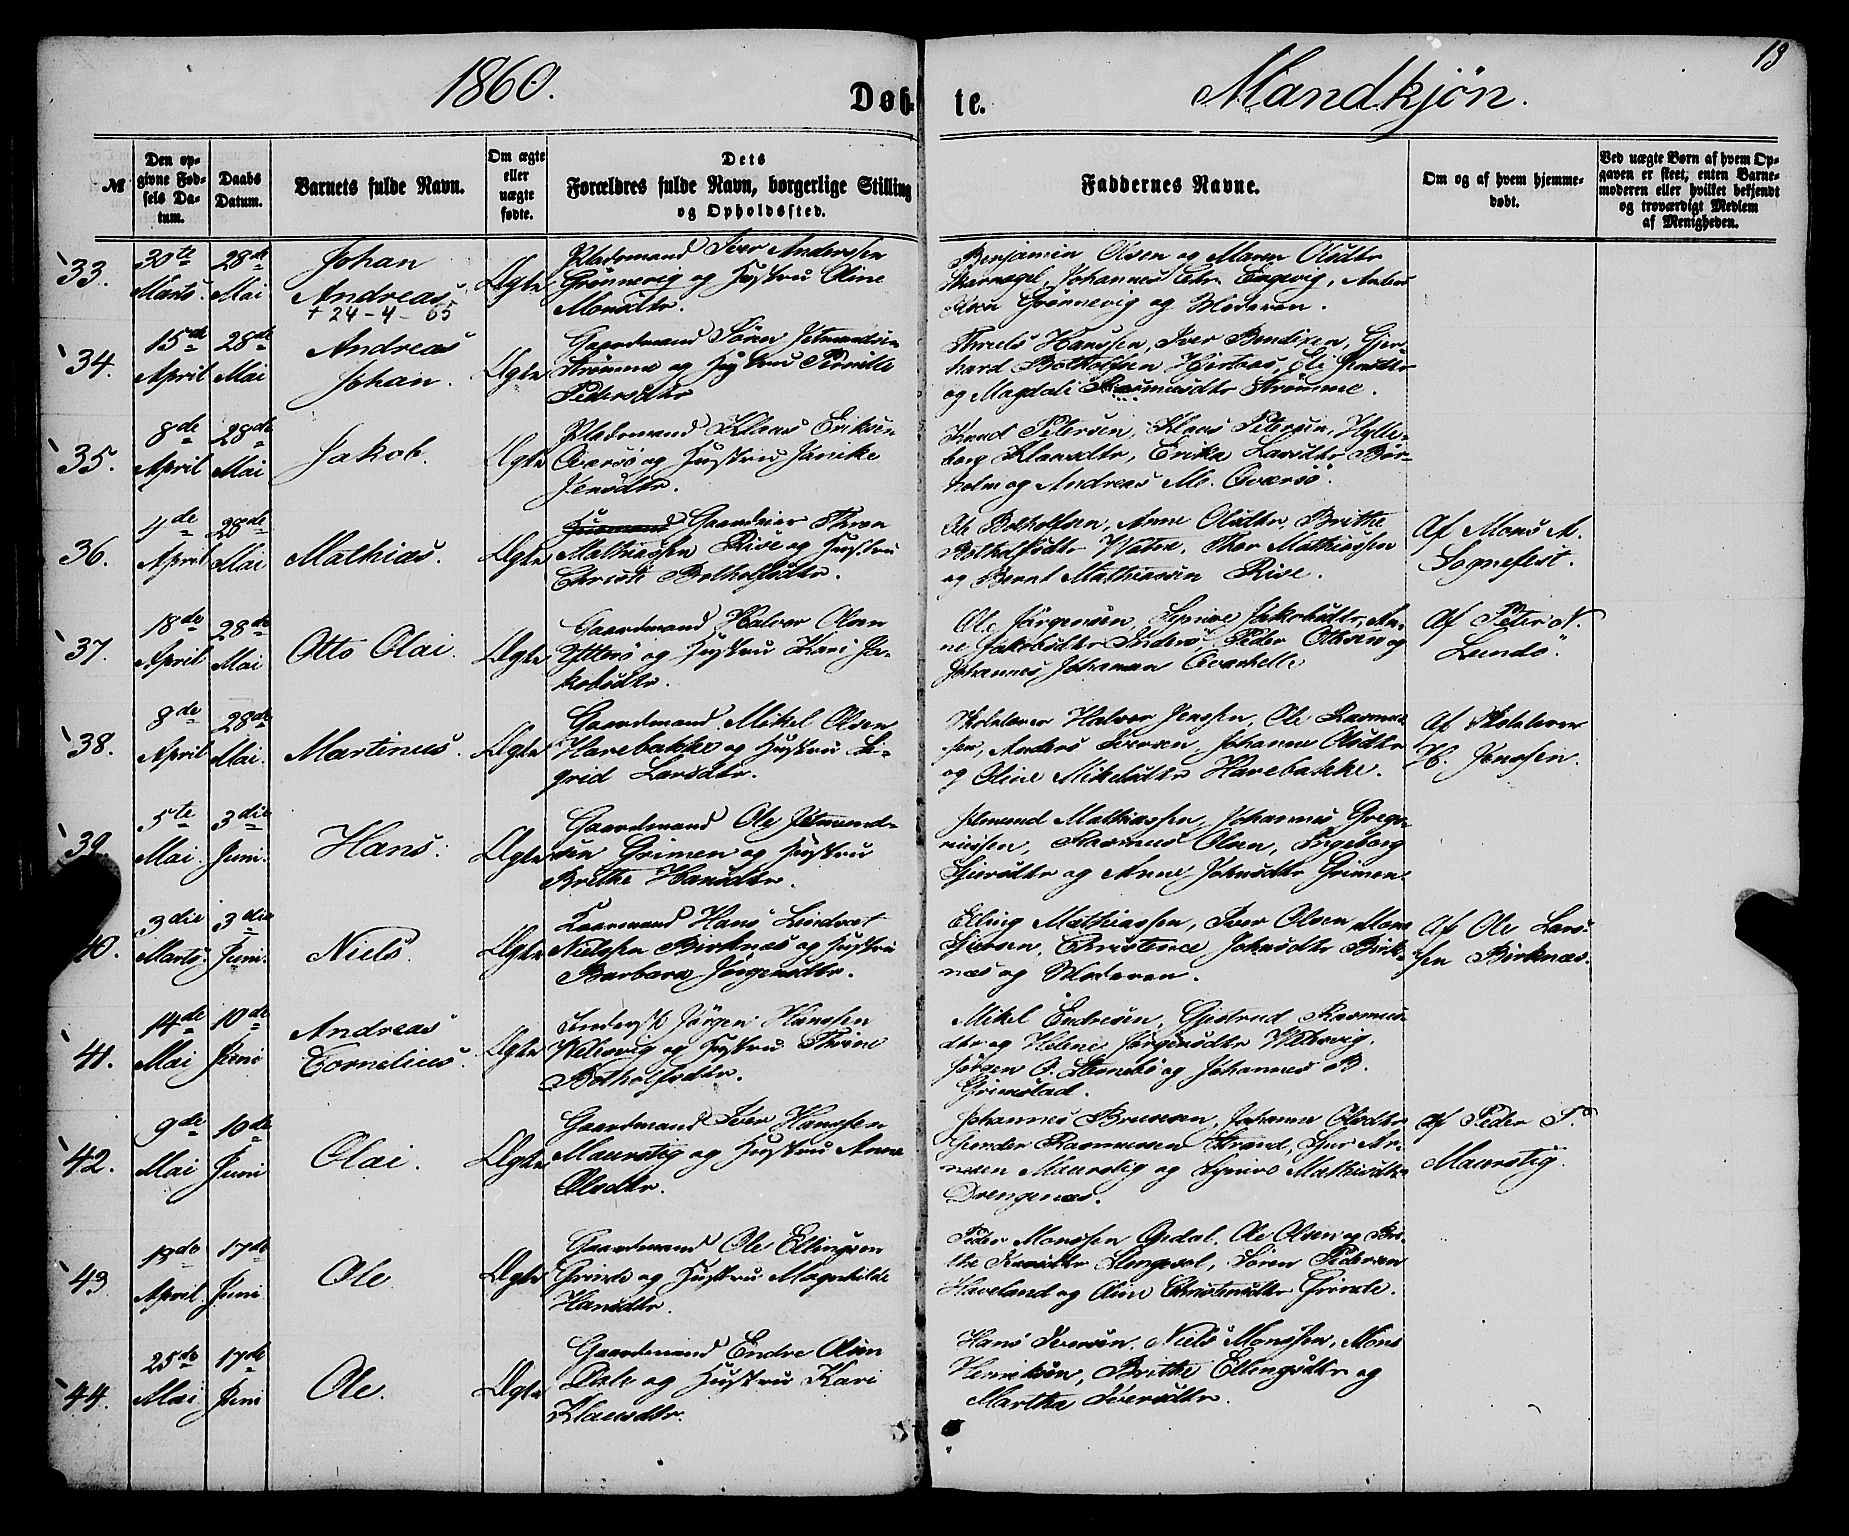 13
1860. Døb- te. Mandkjøn.
№
Den op-
givne Fød-
sels Da-
tum.
Daabs
Datum.
Barnets fulde Navn.
Om ægte
eller
uægte
fødte.
Dets
Forældres fulde Navn, borgerlige Stilling
og Opholdssted.
Faddernes Navne.
Om og af hvem hjemme-
døbt.
Ved uægte Børn af hvem Op-
gaven er skeet, enten Barne-
moderen eller hvilket bekjendt
og troværdigt Medlem
af Menigheden.
33.
30te
Marts.
28de
Mai
Johan
Andreas
+ 24-4-65
Ægte
Pladsmand Iver Anderssen
Grønnevig og Hustru Oline
Monsdtr.
Benjamin Olsen og Maren Olsdtr
Johannes Engevig, Anders
Grønnevig og Moderen.
34.
15de
April
28de
Mai
Andreas
Johan.
Ægte
Gaardmand Søren
Strømme og Hustru Pernille
Pedersdtr
Hanssen, Iver Bendixen, Gjer-
hard Botholfsen
og Magdali Rasmusdtr Strømme.
35.
8de
April
28de
Mai
Jakob.
Ægte
Pladsmand Klaus Eriksen
Qværsø og Hustru Janike
Jensdtr.
Knud Petersen, Klaus Petersen, Hylle-
borg Klausdtr, Erika Larsdtr Bør-
holm og Andreas M. Qværsø.
36.
4de
April
28de
Mai
Mathias.
Ægte
Gaardeier
Mathiassen Rise og Hustru
Christi Botholfsdtr.
Ole Botholfsen, Anne Olsdtr, Brithe
Botholfsdtr Thor Mathiassen
og Bernt Mathiassen Rise.
Af Mons A.
Sognefest.
37.
18de
April
28de
Mai
Otto Olai.
Ægte
Gaardmand Halvor Olsen
Ytterø og Hustru Kari Ja-
kobsdtr.
Ole Jørgensen, Jakobsdtr, An-
ne Jakobsdtr Inderø, Peder Ottesen og
Johannes Johannesen
Af Peter N.
Lundø.
38.
8de
April
28de
Mai.
Martinus.
Ægte
Gaardmand Mikel Olsen
Harebakke og Hustru Si-
grid Larsdtr.
Skolelærer Halvor Jenssen, Ole Rasmus-
sen, Anders Iversen, Johanne Olsdtr
og Oline Mikelsdtr Harebakke.
Af Skolelærer
H. Jenssen.
39.
5te
Mai.
3die
Juni.
Hans.
Ægte
Gaardmand Ole
sen Grimen og Hustru
Brithe Hansdtr.
Mathiassen, Johannes Grego-
riussen, Rasmus Olsen, Ingeborg
Siversdtr og Anne Johnsdtr Grimen.
40.
3die
Marts.
3die
Juni.
Niels.
Ægte
Kaarmand Hans Lindvet
Nielssen Birknæs og Hustru
Barbara Jørgensdtr.
Elling Mathiassen, Iver Olsen Mons
Siversen, Christence Johnsdtr Birk-
næs og Moderen.
Af Ole Lars-
sen Birknæs.
41.
14de
Mai
10de
Juni
Andreas
Cornelius.
Ægte
Jørgen Hanssen
og Hustru Thrine
Botholfsdtr.
Mikel Endresen, Gjertrud Rasmus-
dtr og Helene Jørgensdtr
Jørgen O. og Johannes B.
Grimstad.
42.
9de
Mai
10de
Juni
Olai.
Ægte
Gaardmand Iver Hanssen
Maurstig og Hustru Anne
Olsdtr.
Johannes Johanne Olsdtr
Rasmussen Strand, Iver
Maurstig og Mathisdtr
Drengenæs.
Af Peder P.
Maurstig.
43
April.
17de
Juni
Ole.
Ægte
Gaardmand Ole Ellingsen
Grinde og Hustru Magnhilde
Hansdtr.
Peder Monssen Opdal, Ole Olsen og Bri-
the Søren Pedersen
Haveland og Oline Christensdtr Grinde.
44.
25de
Mai.
17de
Juni
Ole.
Ægte
Gaardmand Endre Olsen
Dale og Hustru Kari
Klausdtr.
Hans Iversen, Niels Monssen, Mons
Henriksen, Brithe Ellingsdtr og
Martha Iversdtr.